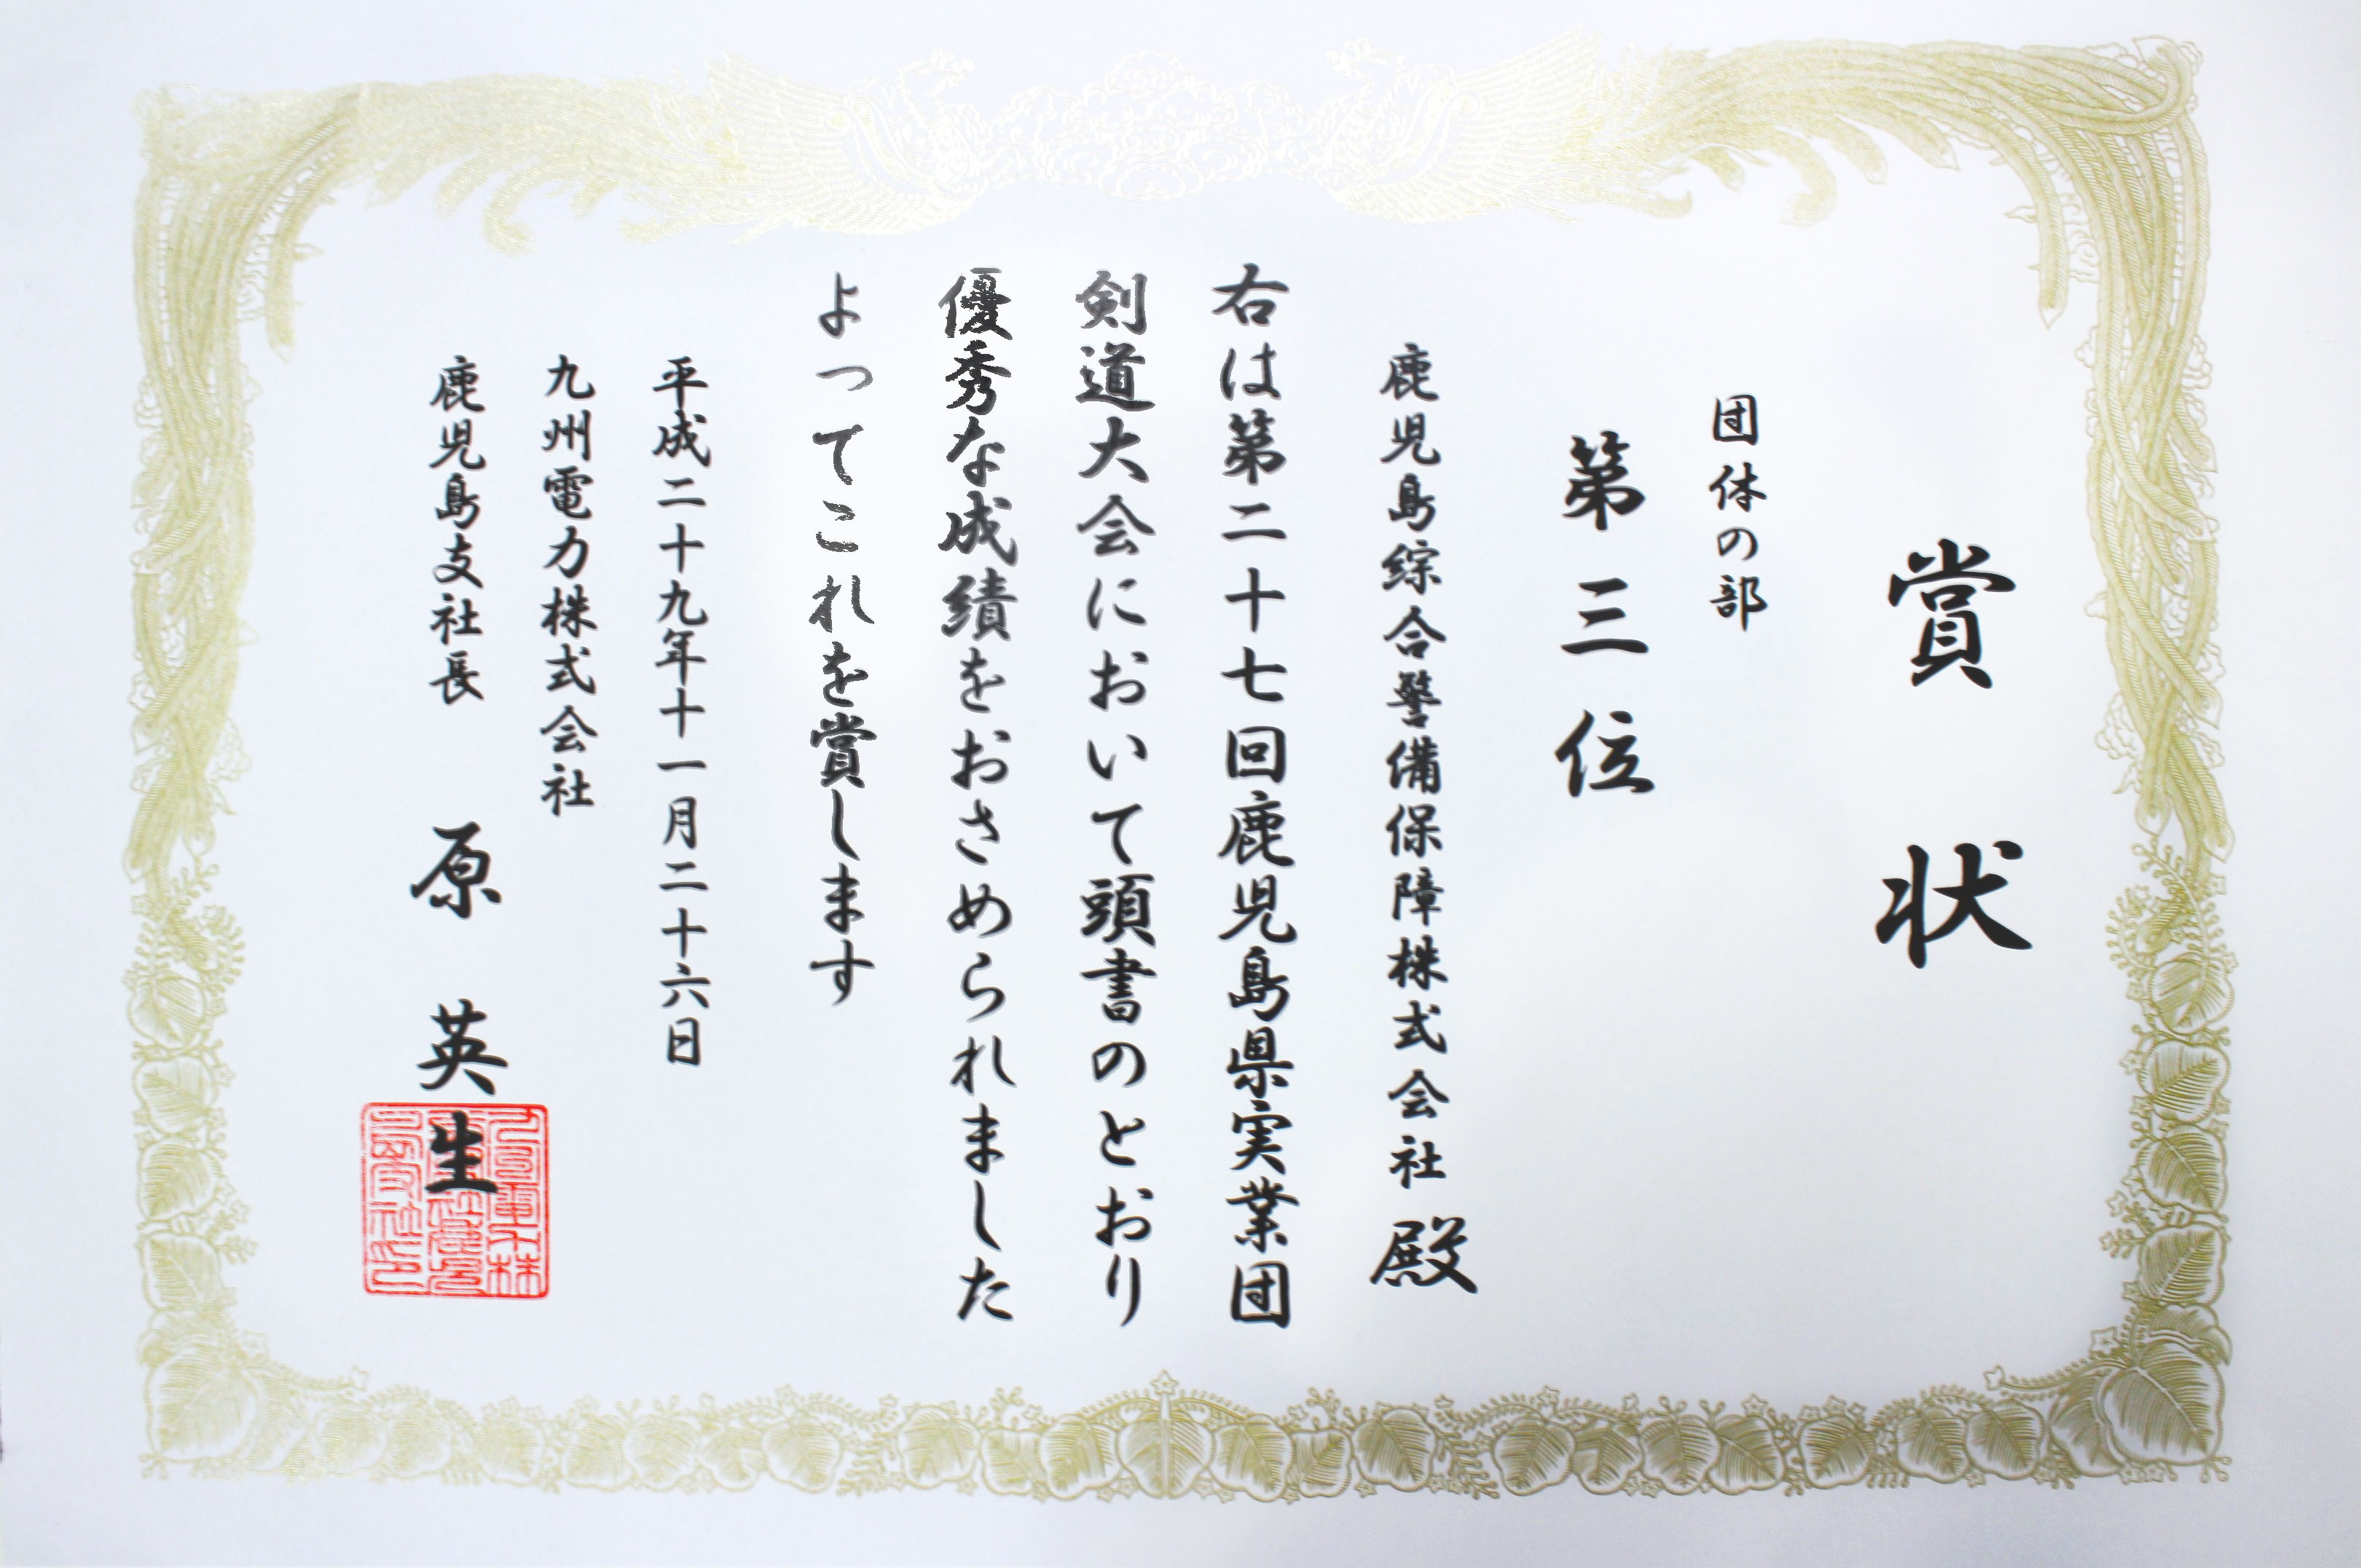 賞状
団体の部
第三位
鹿児島綜合警備保障株式会社 殿
右は第二十七回鹿児島県実業団
剣道大会において頭書のとおり
優秀な成績をおさめられました
よってこれを賞します
平成二十九年十一月二十六日
九州電力株式会社
鹿児島支社長 原英生